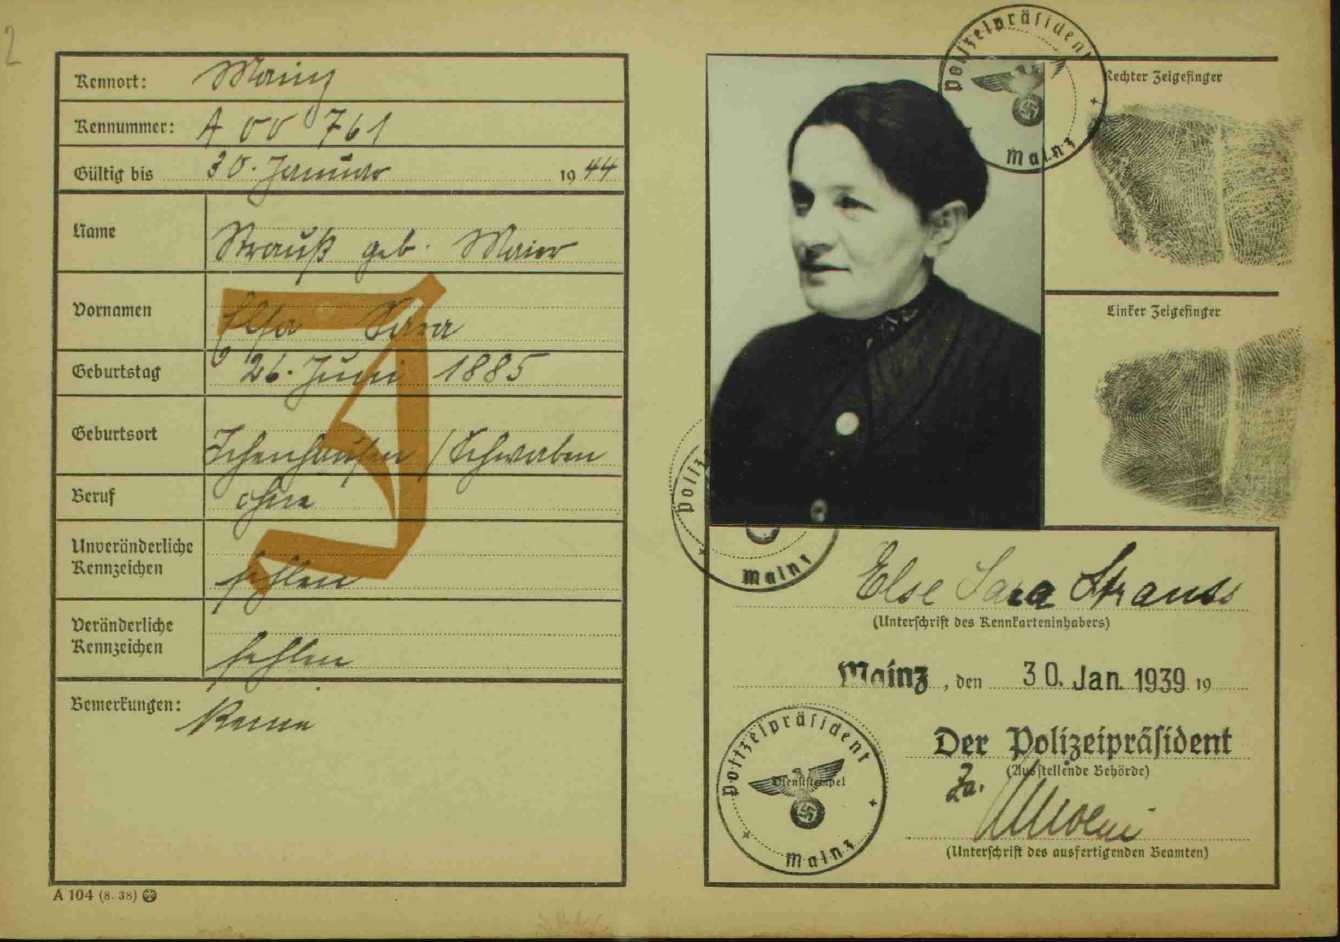 2
Kennort: Mainz
Kennummer: A 00 761
Gültig bis 30. Januar 1944
Name Strauß geb. Maier
Vornamen Elsa Sara
Geburtstag 26. Juni 1885
Geburtsort Ichenhausen / Schwaben
Beruf ohne
Unveränderliche
Kennzeichen fehlen
Veränderliche
Kennzeichen fehlen
Bemerkungen: Keine
J
A 104 (8. 38)
Polizeipräsident
Mainz
Rechter Zeigefinger
Linker Zeigefinger
Poliz
Mainz
Else Sara Strauss
(Unterschrift des Kennkarteninhabers)
Mainz, den 30. Jan. 1939 19
Polizeipräsident
Dienststempel
Mainz
Der Polizeipräsident
(Ausstellende Behörde)
(Unterschrift des ausfertigenden Beamten)